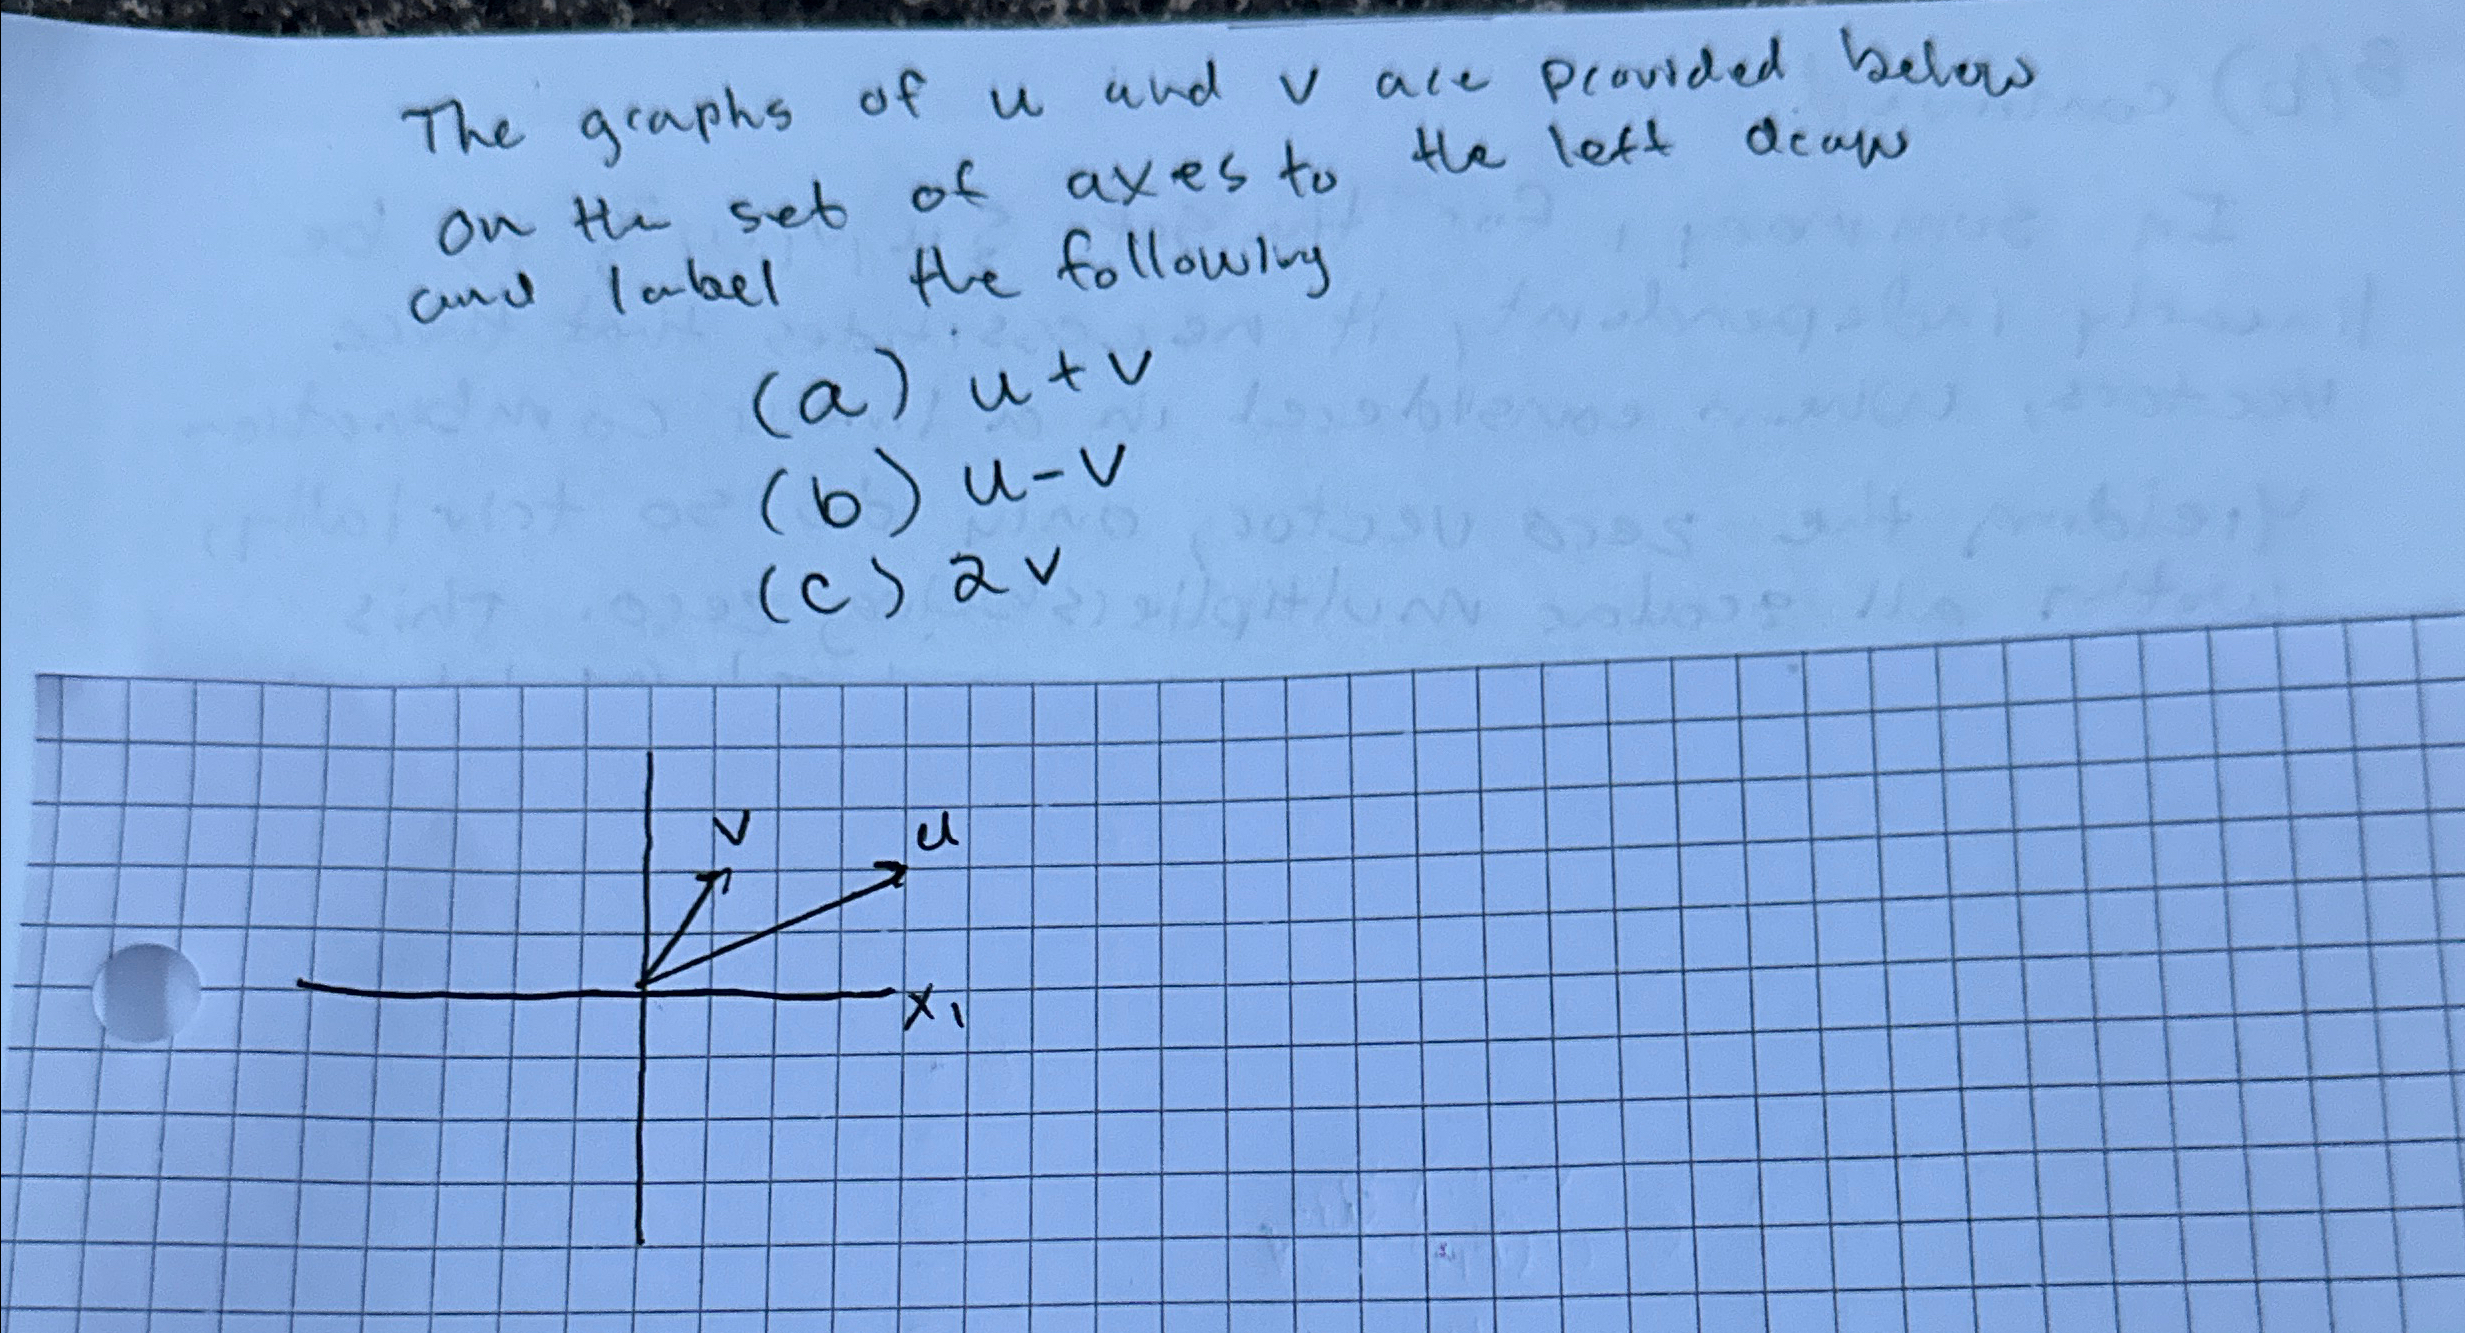 The graphs of u and v are provided below
on the set of axes to the left draw
and label the following
(a) u + v
(b) u - v
(c) 2v
v
u
x₁